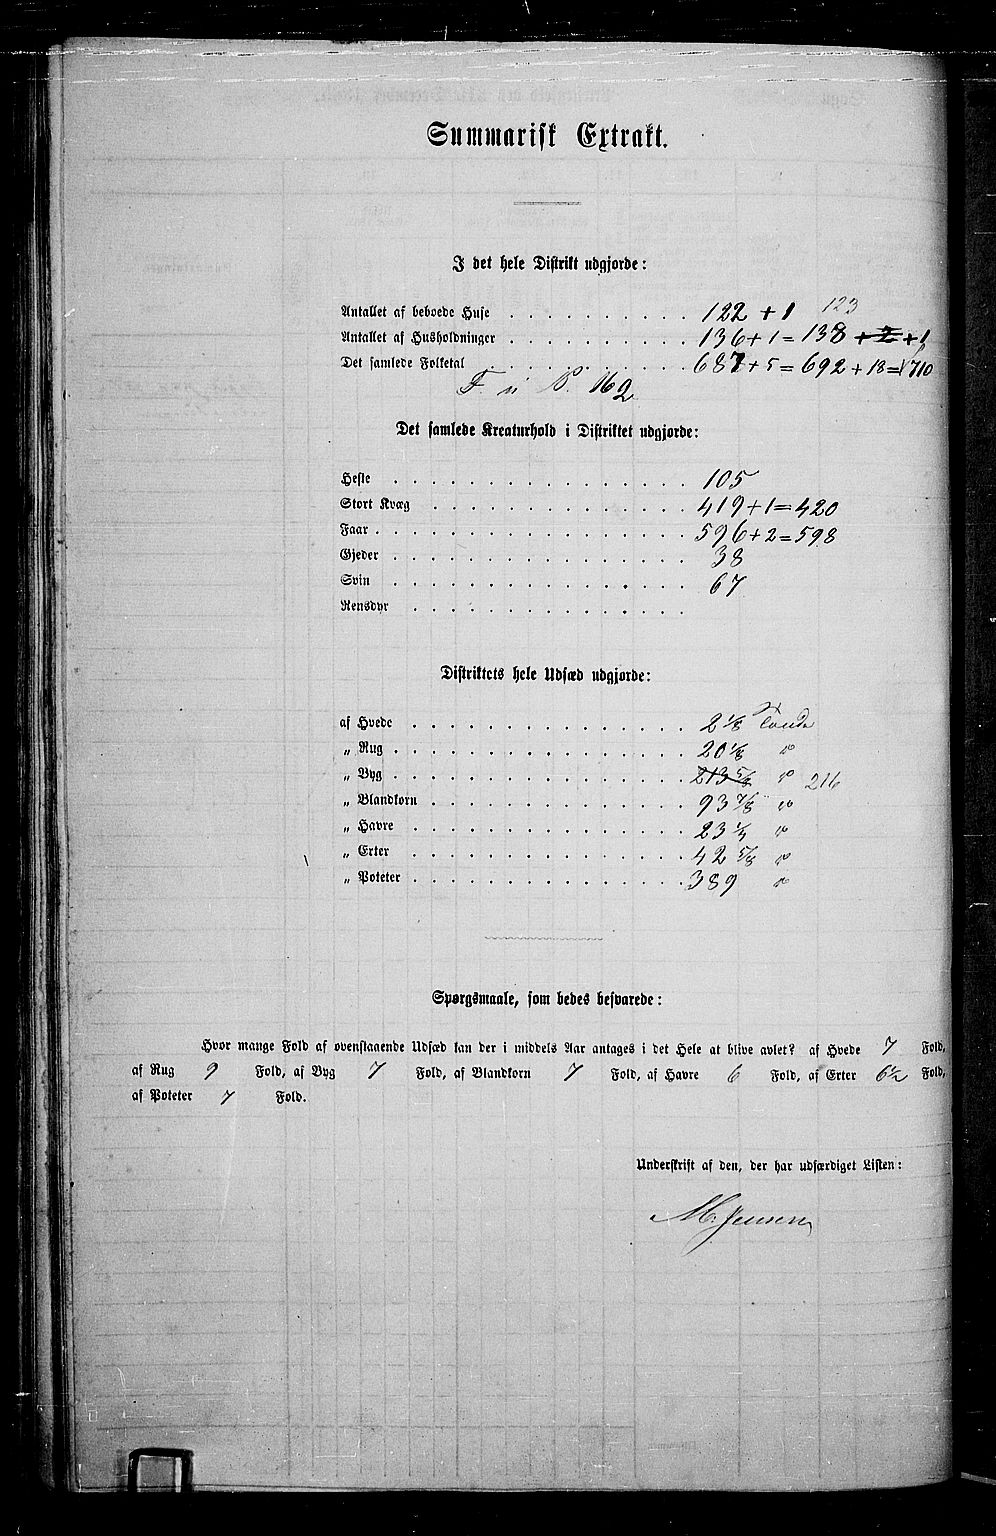 Summarisk Extrakt.
I det hele Distrikt udgjorde:
Antallet af beboede Huse 122 + 1 123
Antallet af Husholdninger 136 + 1 = 138 + 2 + 1
Det samlede Folketal 687 + 5 = 692 + 18 = 710
162
Det samlede Kreaturhold i Distriktet udgjorde:
Heste 105
Stort Kvæg 419 + 1 = 420
Faar 596 + 2 = 598
Gjeder 38
Svin 67
Rensdyr
Distriktets hele Udsæd udgjorde:
af Hvede 2 1/8 Tønde
„ Rug 20 1/8 "
„ Byg 213 5/8 " 216
„ Blandkorn 93 7/8 "
„ Havre 23 1/4 "
„ Erter 42 5/8 "
„ Poteter 389 "
Spørgsmaale, som bedes besvarede:
Hvor mange Fold af ovenstaaende Udsæd kan der i middels Aar antages i det Hele at blive avlet? af Hvede 7 Fold,
af Rug 9 Fold, af Byg 7 Fold, af Blandkorn 7 Fold, af Havre 6 Fold, af Erter 6 1/2 Fold,
af Poteter 7 Fold.
Underskrift af den, der har udfærdiget Listen:
M. Jensen